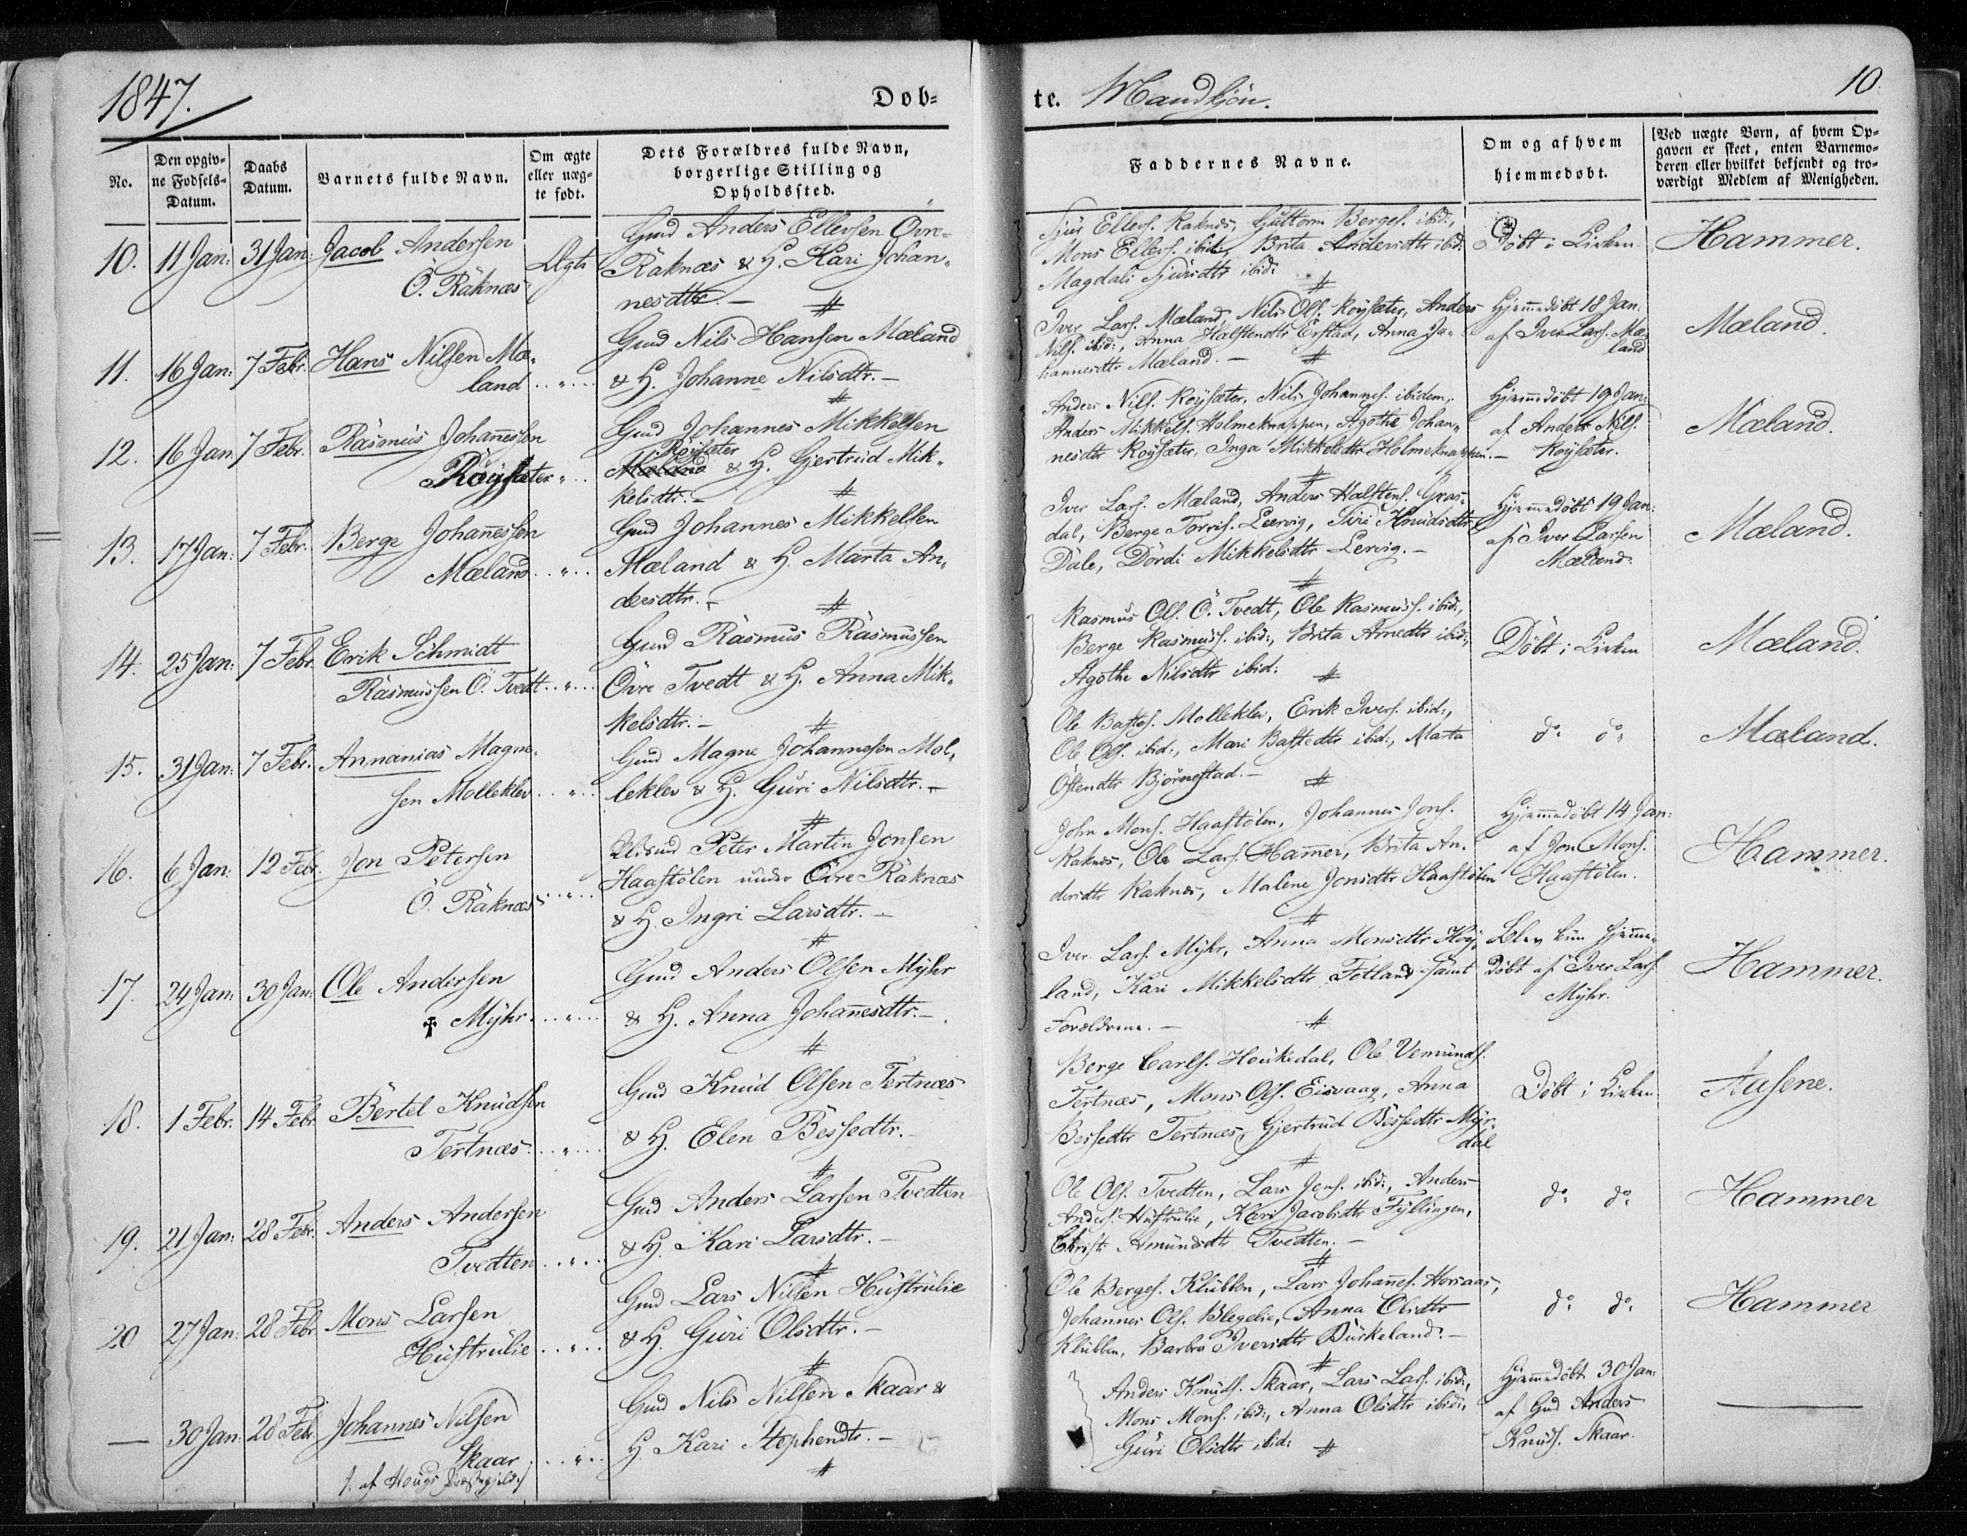 1847.
Døb-
No.
Den opgiv-
ne Fødsels-
Datum.
Daabs
Datum.
Barnets fulde Navn.
Om ægte
eller uæg-
te født.
Dets Forældres fulde Navn,
borgerlige Stilling og
Opholdssted.
10. 11 Jan: 31 Jan: Jacob Andersen
Ö. Raknæs
Ægte
Gmd Anders Ellevsen Övre-
Raknæs & H. Kari Johan-
nesdtr. —
11. 16 Jan: 7 Febr. Hans Nilsen Mæ-
land
Gmd Nils Hansen Mæland
& H. Johanne Nilsdtr. —
12. 16 Jan: 7 Febr. Rasmus Johannessen
Röysæter
Gmd Johannes Mikkelsen
Röysæter
Mæland & H. Gjertrud Mik-
kelsdtr. —
13. 17 Jan: 7 Febr. Berge Johannessen
Mæland
Gmd Johannes Mikkelsen
Mæland & H. Marta An-
dersdtr. —
14. 25 Jan: 7 Febr. Erik Schmidt
Rasmussen Ö. Tvedt
Gmd Rasmus Rasmussen
Övre Tvedt & H. Anna Mik-
kelsdtr. —
15. 31 Jan: 7 Febr. Annanias Magne-
sen Molleklev
Gmd Magne Johannesen Mol-
leklev & H. Guri Nilsdtr. —
16. 6 Jan: 12 Febr. Jon Petersen
Ö. Raknæs
Huusmd Peter Martin Jonsen
Haastölen under Övre Raknæs
& H. Ingri Larsdtr. —
17. 24 Jan: 30 Jan: Ole Andersen
Myhr
Gmd Anders Olsen Myhr
& H. Anna Johannesdtr. —
18. 1 Febr. 14 Febr. Bertel Knudsen
Tertnæs
Gmd Knud Olsen Tertnæs
& H. Elen Bessedtr. —
19. 21 Jan: 28 Febr. Anders Andersen
Tvedten
Gmd Anders Larsen Tvedten
& H. Kari Larsdtr. —
20 27 Jan: 28 Febr. Mons Larsen
Hustrulie
Gmd Lars Nilsen Hustrulie
& H. Guri Olsdtr. —
— 30 Jan: 28 Febr. Johannes Nilsen
Skaar
/: af Hougs Præstegjeld :/
Gmd Nils Nilsen Skaar &
H. Kari Stephendtr. —
te. Mandkjön.
10.
Faddernes Navne.
Om og af hvem
hjemmedøbt.
[Ved uægte Børn, af hvem Op-
gaven er skeet, enten Barnemo-
deren eller hvilket bekjendt og tro-
værdigt Medlem af Menigheden.
Sjur Ellevs. Raknæs, Guttorm Berges. ibid:,
Mons Ellevs. ibid:, Brita Andersdtr ibid:
Magdali Sjursdtr ibid:
Döbt i Kirken
Hammer.
Iver Lars. Mæland, Nils Ols. Röysæter, Anders
Nils. ibid:, Anna Halstendtr Erstad, Anna Jo-
hannesdtr Mæland. —
Hjemmedöbt 18 Jan.
af Iver Lars. Mæ-
land
Mæland.
Anders Nils. Röysæter, Nils Johannes. ibidem,
Anders Mikkels. Holmeknappen, Agatha Johan-
nesdtr Röysæter, Inga Mikkelsdtr Holmeknappen. —
Hjemmedöbt 19 Jan:
af Anders Nils.
Röysæter.
Mæland.
Iver Lars. Mæland, Anders Halstens. Gros-
dal, Berge Torris. Leervig, Siri Knudsdtr
Dale, Dordi Mikkelsdtr Lervig. —
Hjemmedöbt 19 Jan:
af Iver Larsen
Mæland.
Mæland.
Rasmus Ols. Ö. Tvedt, Ole Rasmuss. ibid:,
Berge Rasmuss. ibid:, Brita Arnedtr ibid:,
Agothe Nilsdtr ibid:
Döbt i Kirken
Mæland.
Ole Bastes. Molleklev, Erik Ivers. ibid:,
Ole Ols. ibid:, Mari Bastedtr ibid:, Marta
Östendtr Björnestad. —
do do
Mæland.
John Mons. Haastölen, Johannes Jons.
Raknæs, Ole Lars. Hammer, Brita An-
dersdtr Raknæs, Malene Jonsdtr Haastölen
Hjemmedöbt 14 Jan:
af Jon Mons.
Haastölen.
Hammer.
Iver Lars. Myhr, Anna Monsdtr Höy-
land, Kari Mikkelsdtr Totland samt
Forældrene. —
Blev kun hjemme-
döbt af Iver Lars.
Myhr.
Hammer.
Berge Carls. Houkedal, Ole Vemunds.
Tertnæs, Mons Ols. Eisvaag, Anna
Bessedtr Tertnæs, Gjertrud Bessedtr Myr-
dal
Döbt i Kirken
Aasene.
Ole Ols. Tvedten, Lars Jens. ibid:, Anders
Anders. Hustrulie, Kari Jacobsdtr Fyllingen,
Christi Amundsdtr Tvedten. —
do do
Hammer
Ole Berges. Klubben, Lars Johannes. Horsaas,
Johannes Ols. Blegelie, Anna Olsdtr
Klubben, Barbro Iversdtr Birkeland. —
do do
Hammer
Anders Knuds. Skaar, Lars Lars. ibid:,
Mons Mons. ibid:, Anna Olsdtr ibid:,
Guri Olsdtr ibid:
Hjemmedöbt 30 Jan:
af Gmd Anders
Knuds. Skaar.